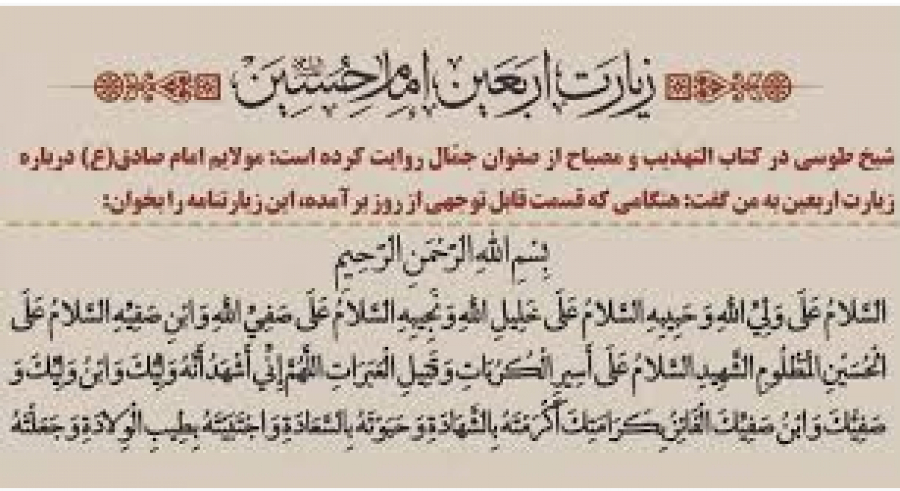 زیارت اربعین امام حسین
شیخ طوسی در کتاب التهذیب و مصباح از صفوان جمّال روایت کرده است: مولایم امام صادق(ع) درباره
زیارت اربعین به من گفت: هنگامی که قسمت قابل توجهی از روز برآمده، این زیارتنامه را بخوان:
بِسْمِ اللَّهِ الرَّحْمَنِ الرَّحِيمِ
السَّلامُ عَلَى وَلِيِّ اللَّهِ وَ حَبِيبِهِ السَّلامُ عَلَى خَلِيلِ اللَّهِ وَ نَجِيبِهِ السَّلامُ عَلَى صَفِيِّ اللَّهِ وَ ابْنِ صَفِيِّهِ السَّلامُ عَلَى
الْحُسَيْنِ الْمَظْلُومِ الشَّهِيدِ السَّلامُ عَلَى أَسِيرِ الْكُرُبَاتِ وَ قَتِيلِ الْعَبَرَاتِ اللَّهُمَّ إِنِّي أَشْهَدُ أَنَّهُ وَلِيُّكَ وَ ابْنُ وَلِيِّكَ وَ
صَفِيُّكَ وَ ابْنُ صَفِيِّكَ الْفَائِزُ بِكَرَامَتِكَ أَكْرَمْتَهُ بِالشَّهَادَةِ وَ حَبَوْتَهُ بِالسَّعَادَةِ وَ اجْتَبَيْتَهُ بِطِيبِ الْوِلادَةِ وَ جَعَلْتَهُ